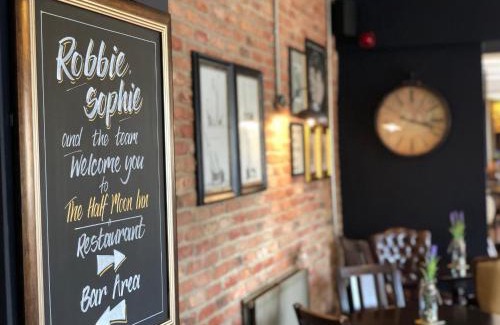 Robbie,
Sophie
and the team
Welcome you
to
The Half Moon Inn
Restaurant
Bar Area